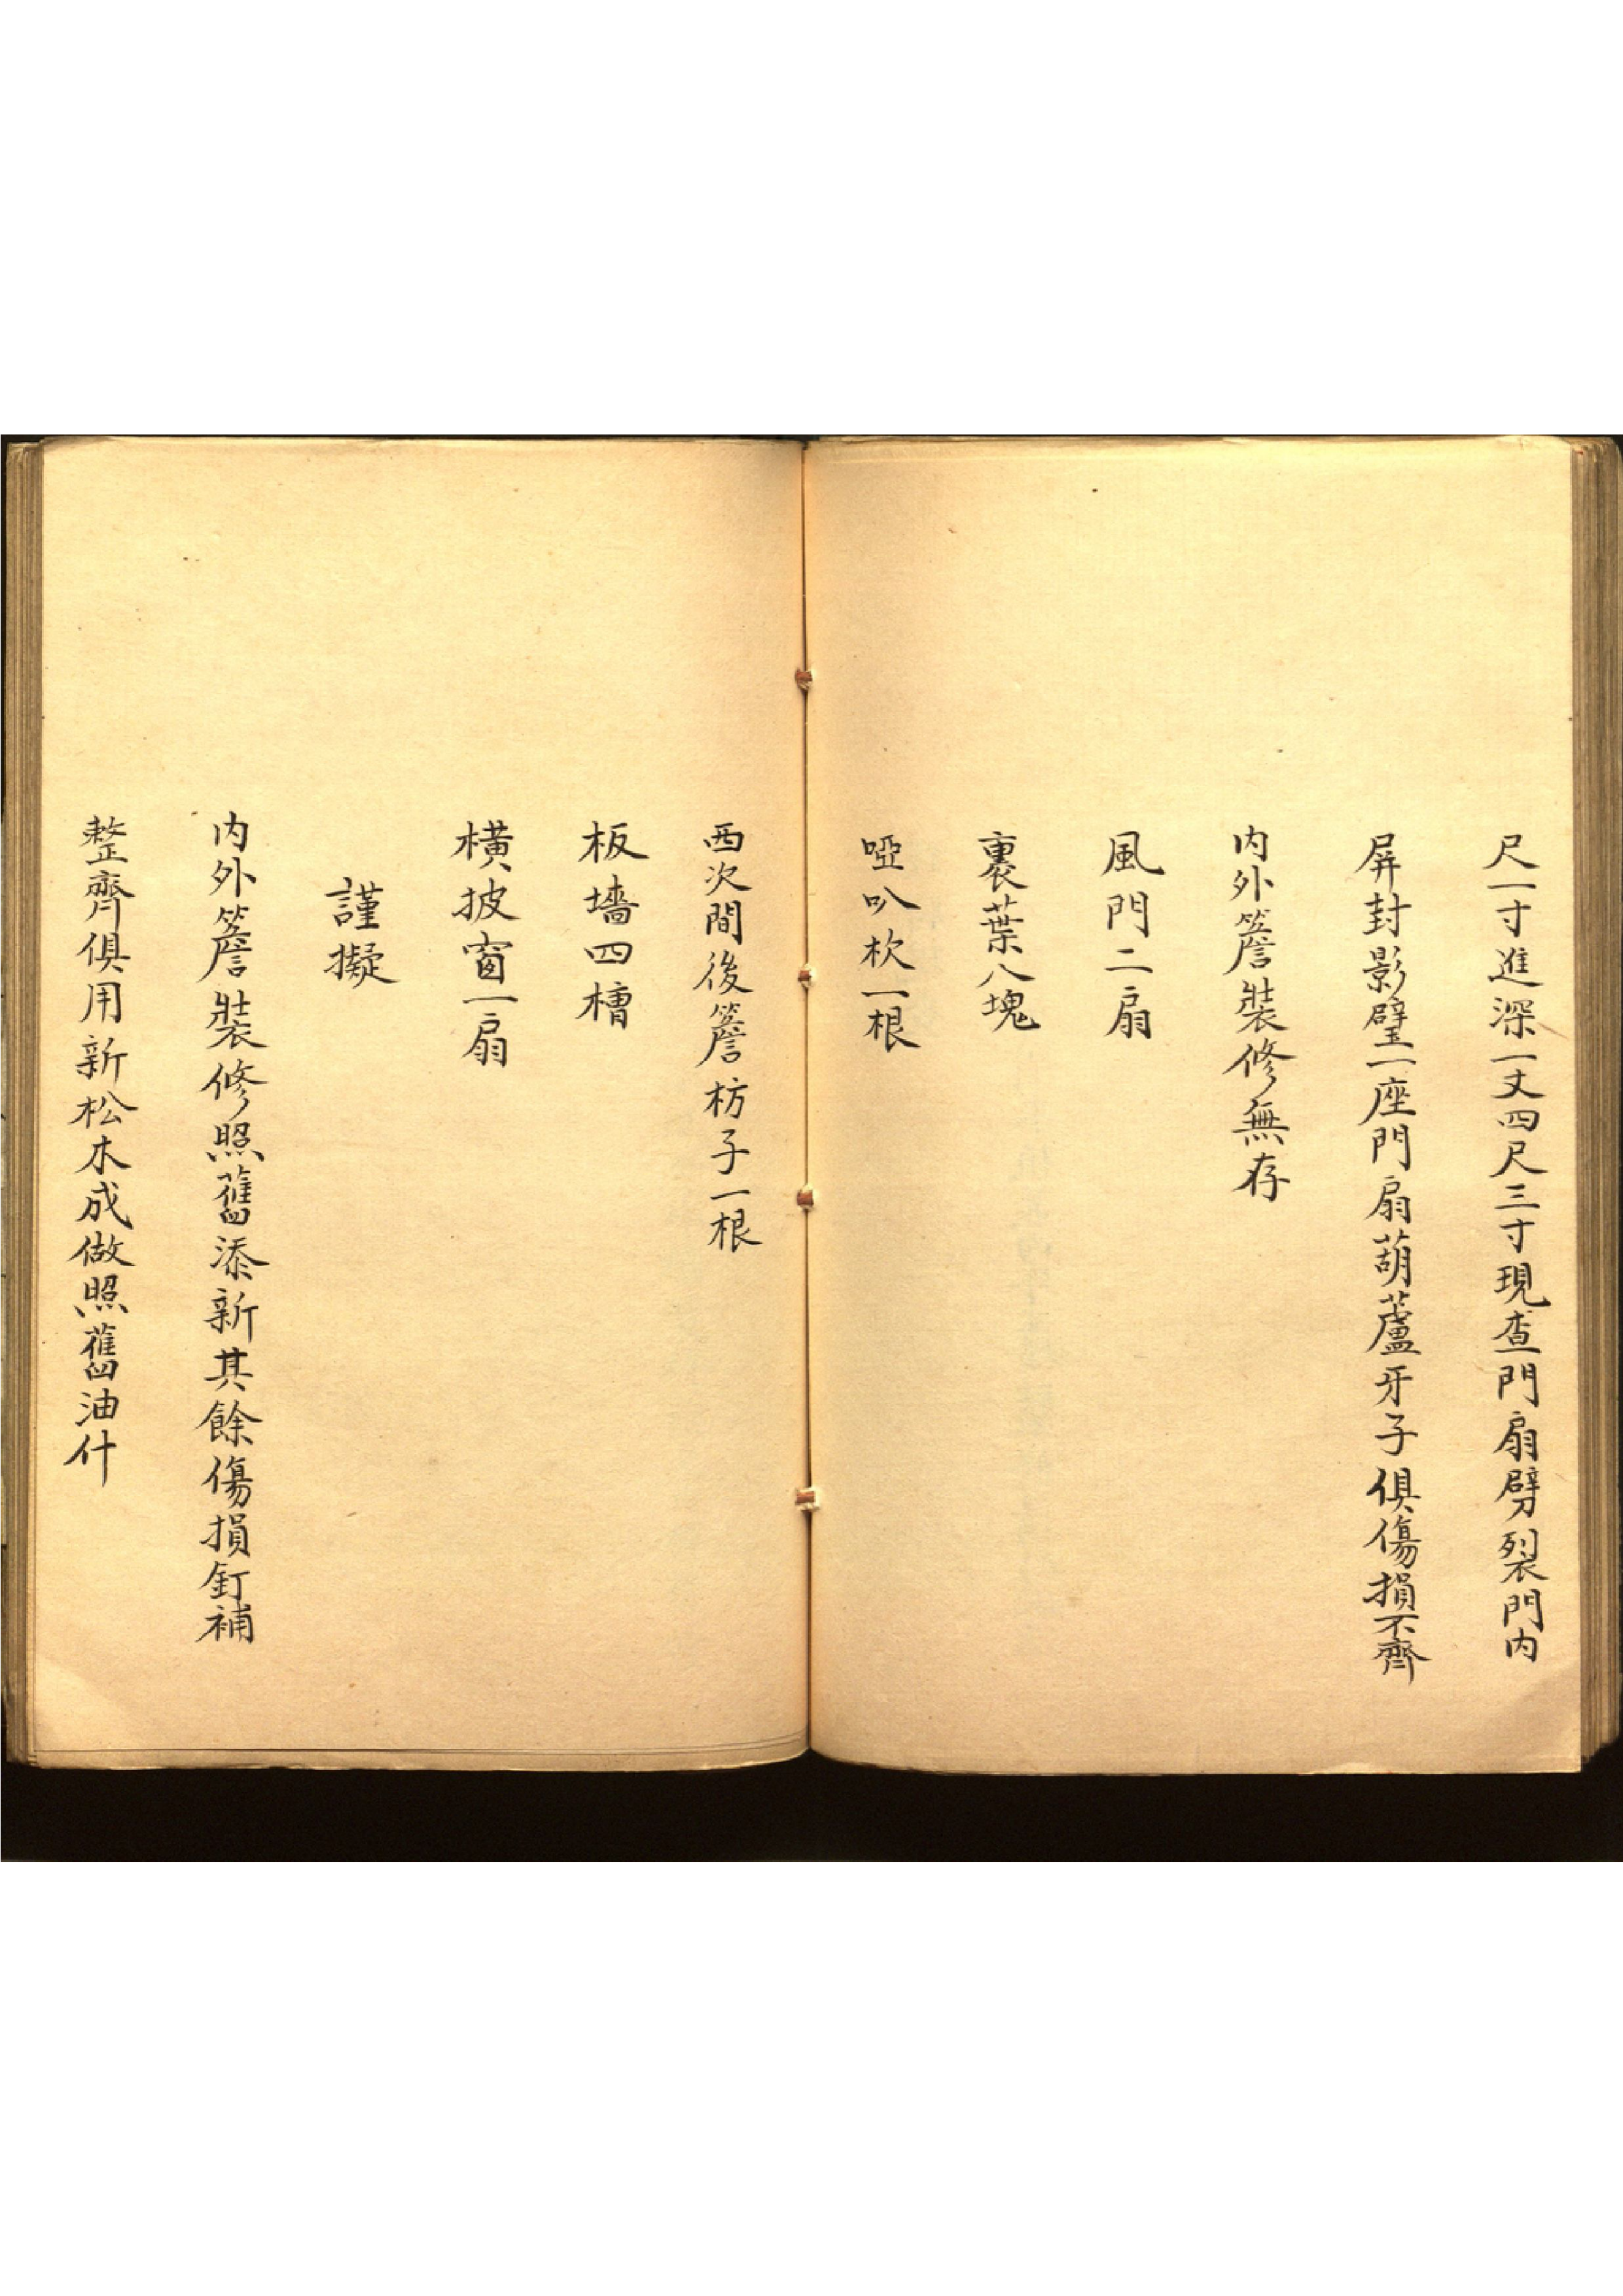 尺一寸進深一丈四尺三寸現查門扇劈裂門内
屏封影壁一座門扇葫蘆牙子俱傷損不齊
内外簷裝修無存
風門二扇
裹葉八塊
啞叭杴一根
西次間後簷枋子一根
板墻四槽
横披窗一扇
謹擬
内外簷裝修照舊添新其餘傷損釘補
整齊俱用新松木成做照舊油什